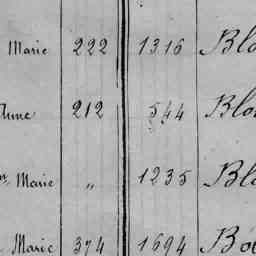 Marie 222 1316 Blo
212 544 Blo
Marie „ 1235 Blo
Marie 374 1694 Bo